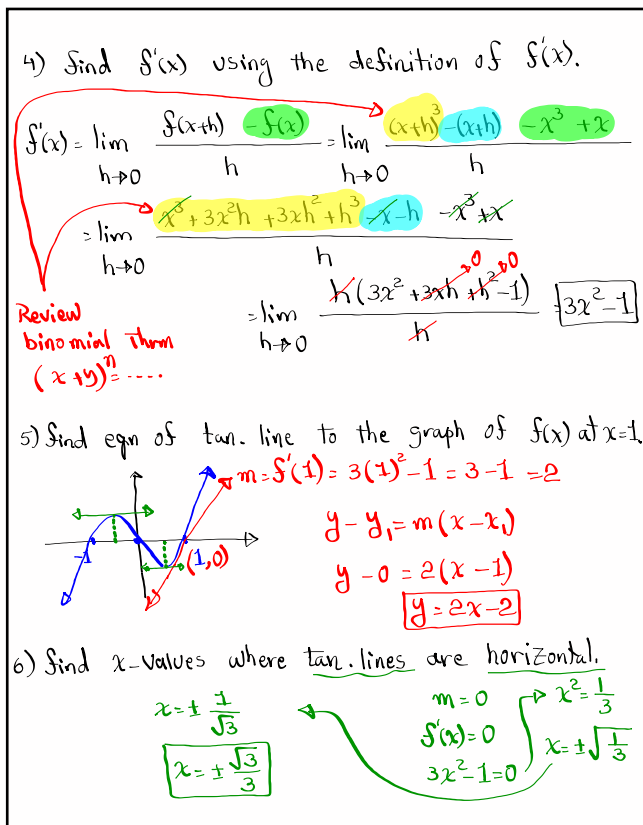 4) Find f'(x) using the definition of f'(x).
f'(x) = lim h→0 (f(x+h) - f(x))/h = lim h→0 ((x+h)³ - (x+h) - x³ + x)/h
= lim h→0 (x³ + 3x²h + 3xh² + h³ - x - h - x³ + x)/h
= lim h→0 h(3x² + 3xh + h² - 1)/h = 3x² - 1
0 0
Review
binomial Thrm
(x+y)ⁿ = ....
5) find eqn of tan. line to the graph of f(x) at x=1
m = f'(1) = 3(1)² - 1 = 3 - 1 = 2
y - y₁ = m(x - x₁)
-1 (1,0)
y - 0 = 2(x - 1)
y = 2x - 2
6) find x-values where tan. lines are horizontal.
m = 0
f'(x) = 0
3x² - 1 = 0
x² = 1/3
x = ±√(1/3)
x = ± 1/√3
x = ± √3/3